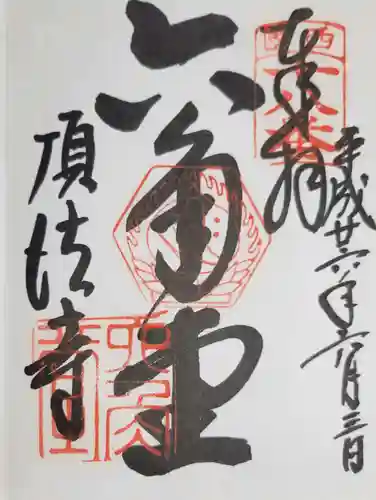 奉拝
平成廿六年六月三日
六角堂
頂法寺